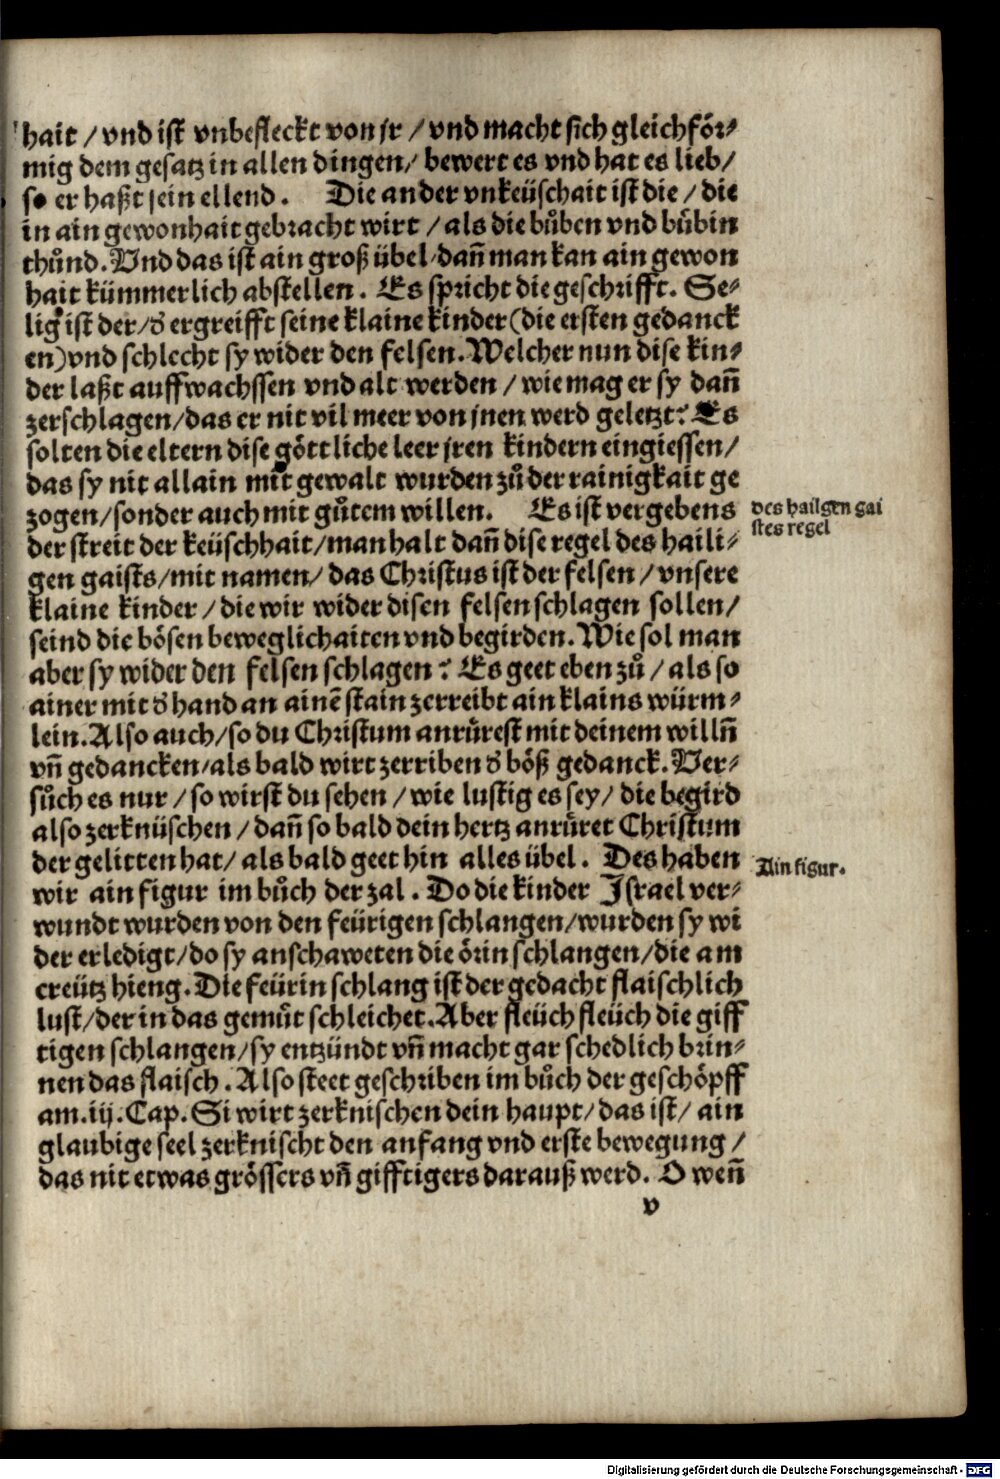 hait / vnd ist vnbefleckt von jr / vnd macht sich gleichför⸗
mig dem gesatz in allen dingen / bewert es vnd hat es lieb /
so er haßt sein ellend . Die ander vnkeüschait ist die / die
in ain gewonhait gebracht wirt / als die bůben vnd bůbin
thůnd. Vnd das ist ain groß übel / dañ man kan ain gewon
hait kümmerlich abstellen . Es spricht die geschrifft. Se⸗
lig ist der / d' ergreifft seine klaine kinder (die ersten gedanck
en) vnd schlecht sy wider den felsen. Welcher nun dise kin⸗
der laßt auffwachssen vnd alt werden / wie mag er sy dañ
zerschlagen / das er nit vil meer von jnen werd geletzt? Es
solten die eltern dise göttliche leer jren kindern eingiessen /
das sy nit allain mit gewalt wurden zů der rainigkait ge
zogen / sonder auch mit gůtem willen. Es ist vergebens
der streit der keüschhait / man halt dañ dise regel des haili⸗
gen gaists / mit namen / das Christus ist der felsen / vnsere
klaine kinder / die wir wider disen felsen schlagen sollen /
seind die bösen beweglichaiten vnd begirden. Wie sol man
aber sy wider den felsen schlagen? Es geet eben zů / als so
ainer mit d' hand an ainē stain zerreibt ain klains würm⸗
lein. Also auch / so du Christum anrürest mit deinem willñ
vñ gedancken / als bald wirt zerriben d' böß gedanck. Ver⸗
sůch es nur / so wirst du sehen / wie lustig es sey / die begird
also zerknüschen / dañ so bald dein hertz anrüret Christum
der gelitten hat / als bald geet hin alles übel . Des haben
wir ain figur im bůch der zal . Do die kinder Israel ver⸗
wundt wurden von den feürigen schlangen / wurden sy wi
der erledigt / do sy anschaweten die örin schlangen / die am
creütz hieng. Die feürin schlang ist der gedacht flaischlich
lust / der in das gemüt schleichet. Aber fleüch fleüch die giff
tigen schlangen / sy entzündt vñ macht gar schedlich brin⸗
nen das flaisch . Also steet geschriben im bůch der geschöpff
am .iij. Cap. Si wirt zerknischen dein haupt / das ist / ain
glaubige seel zerknischt den anfang vnd erste bewegung /
das nit etwas grössers vñ gifftigers darauß werd. O weñ
v
des hailgen gai
stes regel
Ain figur.
Digitalisierung gefördert durch die Deutsche Forschungsgemeinschaft - DFG